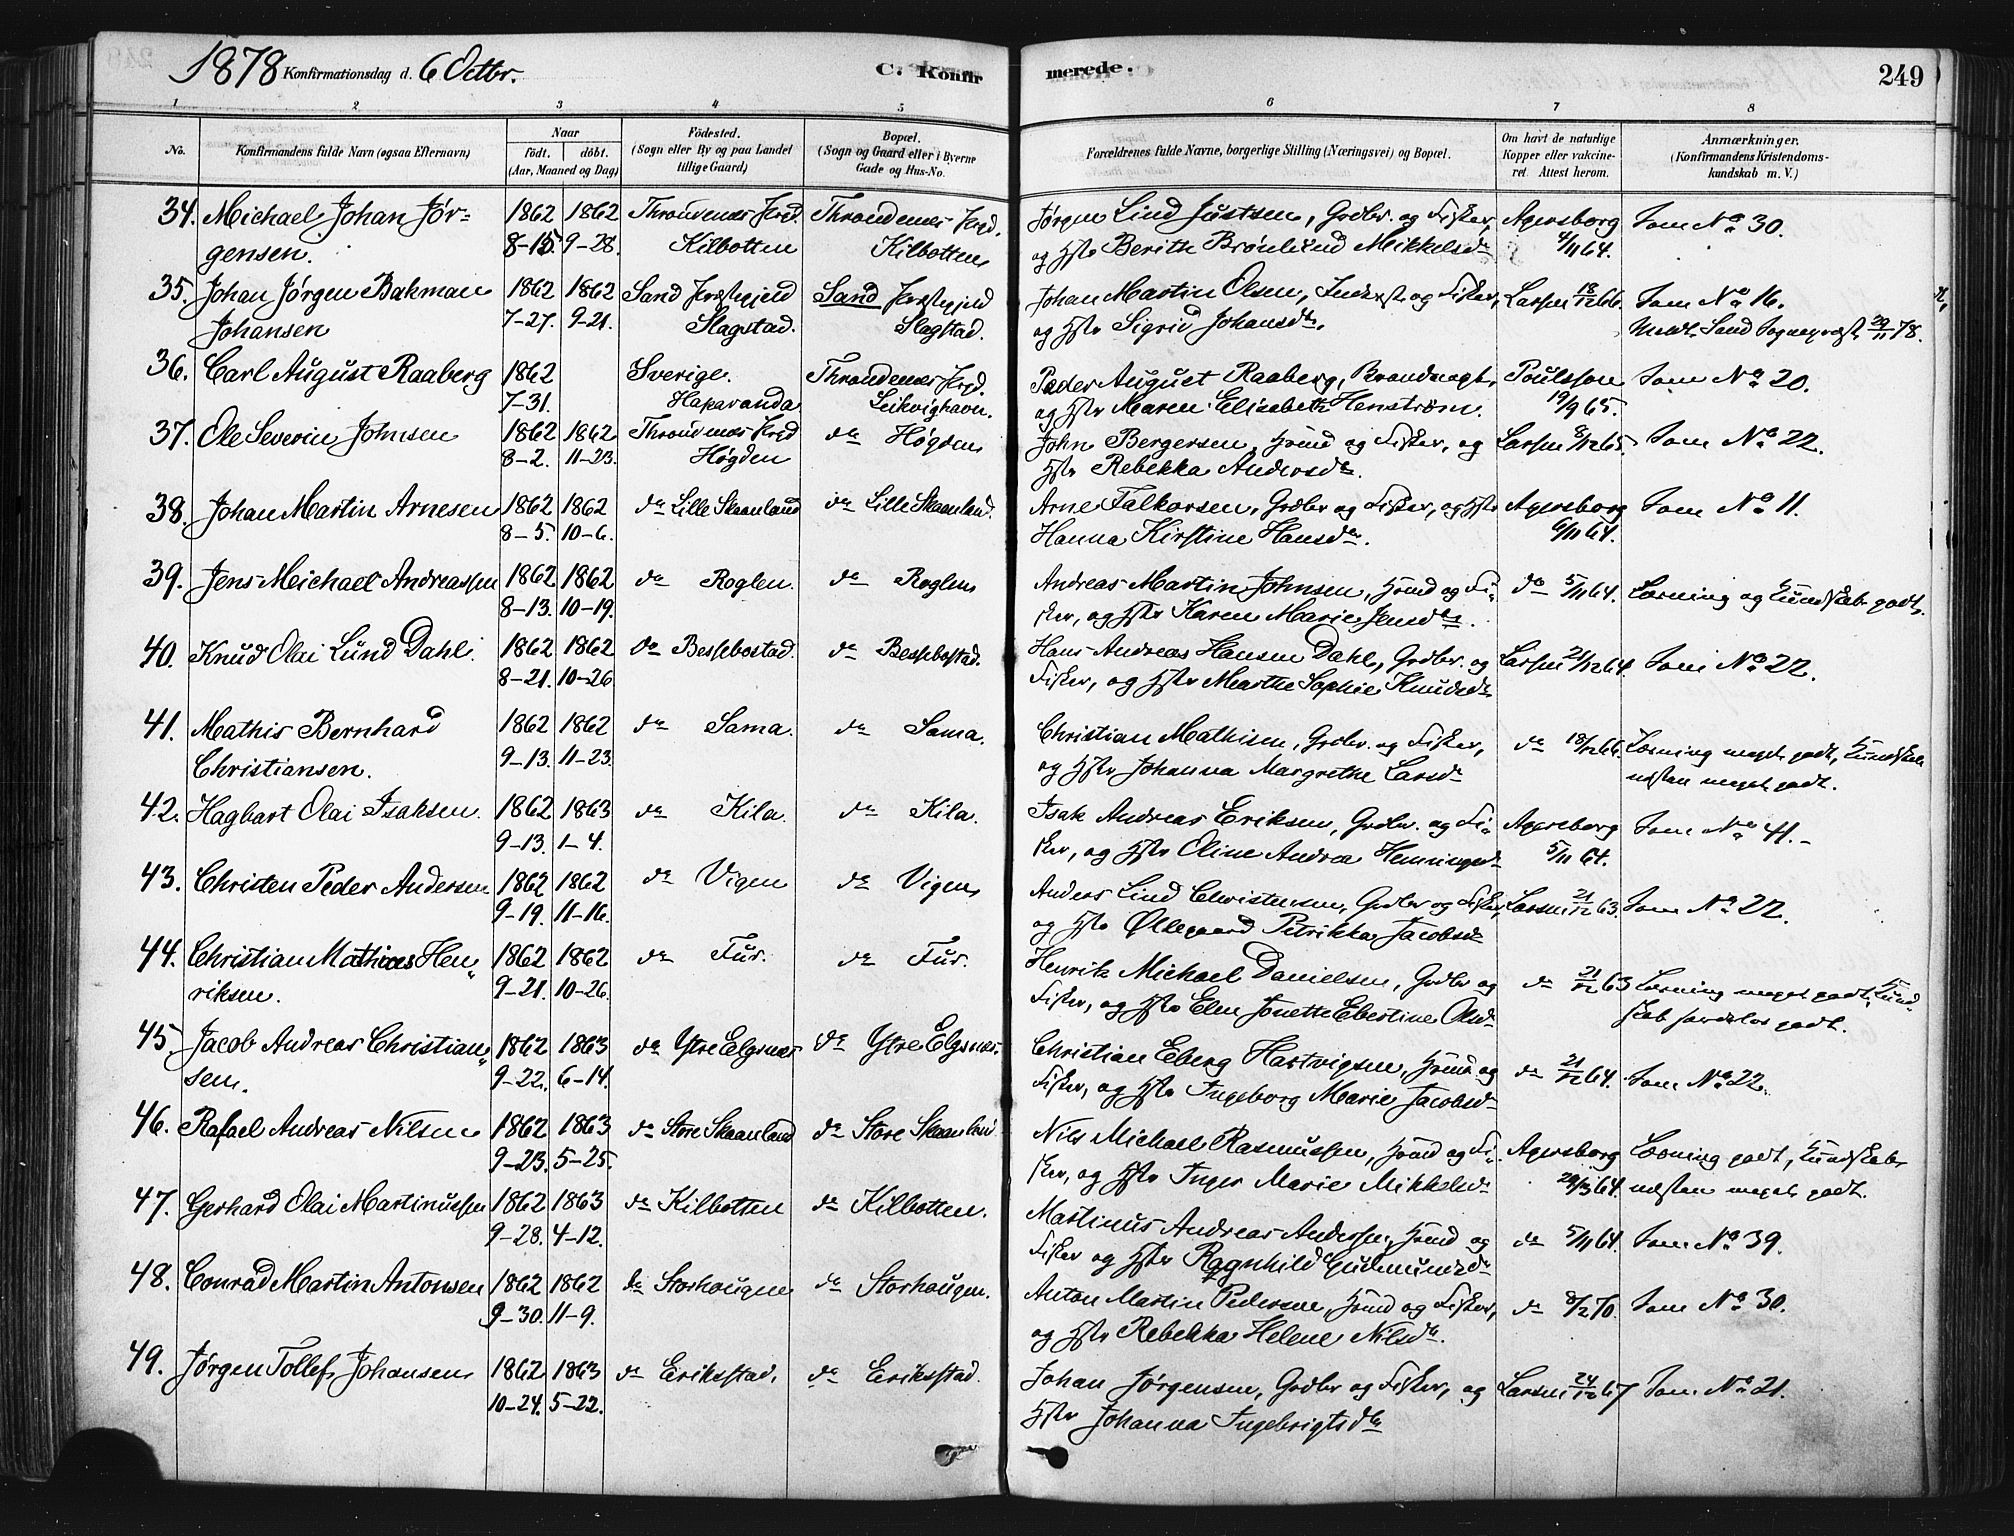 1878 Konfirmationsdag d. 6 Octbr. C. Konfir merede. 249
1 2 3 4 5 6 7 8
No. Konfirmandens fulde Navn (ogsaa Efternavn) Naar født. døbt. (Aar, Maaned og Dag) Fødested. (Sogn eller By og paa Landet tillige Gaard) Bopæl. (Sogn og Gaard eller i Byerne Gade og Hus-No. Forældrenes fulde Navne, borgerlige Stilling (Næringsvei) og Bopæl. Om havt de naturlige Kopper eller vakcineret. Attest herom. Anmærkninger. (Konfirmandens Kristendomskundskab m. V.)
34. Michael Johan Jør- 1862 1862 Throndenæs Prgd. Throndenæs Prgd. Jørgen Lind Justsen, Grdbr. og Fisker, Agersborg Som No 30.
gensen. 8-15 9-28. Kilbotten Kilbotten og Hstr Berith Brønlund Mikkelsdr 4/11 64.
35. Johan Jørgen Bakman 1862 1862 Sand Præstegjeld Sand Præstegjeld Johan Martin Olsen, Inderst og Fisker, Larsen 18/12 66. Som No 16.
Johansen 7-27. 9-21. Slagstad. Slagstad. og Hstr Sigrid Johansdr. Meddt. Sand Sognepræst 29/11 78.
36. Carl August Raaberg 1862 Sverige. Throndenæs Prgd. Peder August Raaberg, Poulsson Som No 20.
7-31. Haparanda Leikvighavn. og Hstr Maren Elisabeth Henstrøm. 19/9 65.
37. Ole Severin Johnsen 1862 1862 Throndenæs Prgd do Høgden John Bergersen, Hmd og Fisker, og Larsen 8/12 65. Som No 22.
8-2. 11-23. Høgden Hstr Rebekka Andersdr.
38. Johan Martin Arnesen 1862 1862 do Lille Skaanland do Lille Skaanland. Arne Falkorsen, Grdbr og Fisker, og Hstr Agersborg Som No 11.
8-5. 10-6. Hanna Kirstine Hansdr. 6/11 64.
39. Jens Meichael Andreassen 1862 1862 do Roglen. do Roglen Andreas Martin Johnsen, Hmd og Fi- do 5/11 64. Læsning og Kundskab godt.
8-13. 10-19. sker, og Hstr Karen Marie Jensdr.
40. Knud Olai Lund Dahl. 1862 1862 do Bessebostad. do Bessebostad. Hans Andreas Hansen Dahl, Grdbr. og Larsen 21/12 64. Som No 22.
8-21. 10-26 Fisker, og Hstr Marthe Sophie Knudsdr
41. Mathis Bernhard 1862 1862 do Sama. do Sama. Christian Mathisen, Grdbr. og Fisker, do 18/12 66. Læsning meget godt, Kundskab
Christiansen. 9-13. 11-23. og Hstr Johanna Margrethe Larsdr næsten meget godt.
42. Hagbart Olai Isaksen. 1862 1863 do Kila. do Kila. Isak Andreas Eriksen, Grdbr. og Fi- Agersborg Som No 41.-
9-13. 1-4. sker, og Hstr Oline Andrea Henningsdr 5/11 64.
43. Christen Peder Andersen 1862 1862 do Vigen do Vigen Anders Lind Christensen, Grdbr og Fisker, Larsen 21/12 63. Som No 22.
9-19. 11-16. og Hstr Ollegaard Petrikka Jacobsdr
44. Christian Mathias Hen- 1862 1862 do Fur. do Fur. Henrik Michael Danielsen, Grdbr og do 21/12 63 Læsning meget godt, Kund-
riksen. 9-21. 10-26. Fisker, og Hstr Elen Jonette Ebertine Olsdr skab særdeles godt.
45 Jacob Andreas Christian- 1862 1863 do Ytre Elgsnæs do Ytre Elgsnæs. Christian Eberg Hartvigsen, Hmd og do 21/12 64. Som No 22.
sen. 9-22. 6-14. Fisker, og Hstr Ingeborg Marie Jacobsdr
46. Rafael Andreas Nilsen 1862 1863 do Store Skaanland do Store Skaanland. Nils Michael Rasmussen, Hmd og Fi- Agersborg Læsning godt, Kundskab
9-23. 5-25. sker, og Hstr Inger Marie Mikkelsdr 28/3 64. næsten meget godt.
47. Gerhard Olai Martinussen 1862 1863 do Kilbotten do Kilbotten. Martinus Andreas Andersen, Hmd og do 5/11 64. Som No 39.
9-28. 4-12. Fisker og Hstr Ragnhild Gudmundsdr
48. Conrad Martin Antonsen 1862 1862 do Storhougen do Storhougen. Anton Martin Pedersen, Hmd og Fisker, do 8/2 70. Som No 30.
9-30. 11-9. og Hstr Rebekka Helene Nilsdr.
49. Jørgen Tollef Johansen 1862 1863 do Eriksstad. do Eriksstad. Johan Jørgensen, Grdbr og Fisker, og Larsen 24/10 67 Som No 21.
10-24. 5-22. Hstr Johanna Ingebrigtsdr